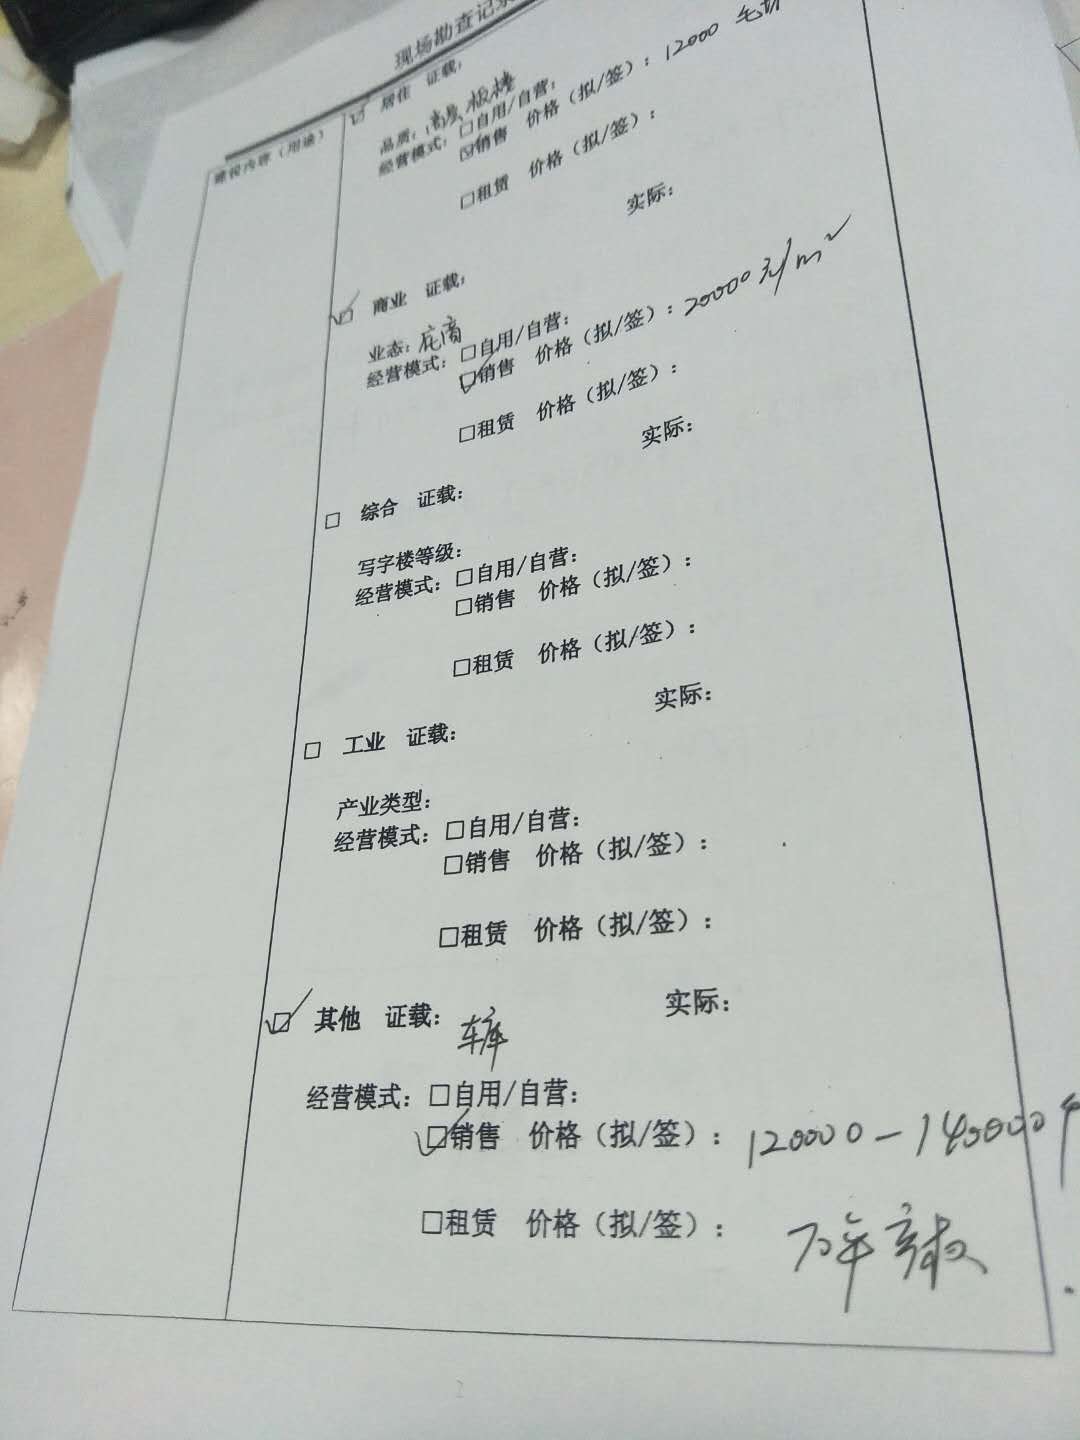 现场勘查记录
建设内容（用途）
☑ 居住 证载：
品质：高层板楼
经营模式：□自用/自营：
☑销售 价格（拟/签）：12000 毛坯
□租赁 价格（拟/签）：
实际：
☑ 商业 证载：
业态：底商
经营模式：□自用/自营：
☑销售 价格（拟/签）：20000元/m²
□租赁 价格（拟/签）：
实际：
□ 综合 证载：
写字楼等级：
经营模式：□自用/自营：
□销售 价格（拟/签）：
□租赁 价格（拟/签）：
实际：
□ 工业 证载：
产业类型：
经营模式：□自用/自营：
□销售 价格（拟/签）：
□租赁 价格（拟/签）：
实际：
☑ 其他 证载：车库
经营模式：□自用/自营：
☑销售 价格（拟/签）：120000-140000个
□租赁 价格（拟/签）：
70年产权